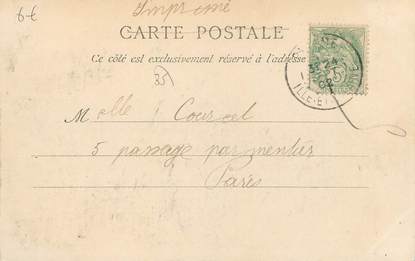 6€
Imprimé
CARTE POSTALE
Ce côté est exclusivement réservé à l'adresse
35
Melle Courcel
5 passage parmentier
Paris
3E 24
02
ILLE-ET-
5